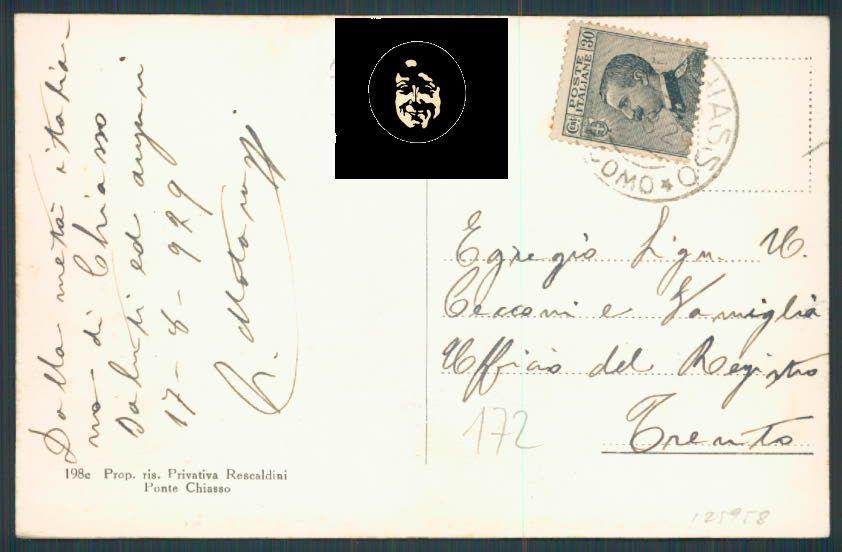 Dalla metà italia-
na di Chiasso
Saluti ed auguri
17-8-929
198c Prop. ris. Privativa Rescaldini
Ponte Chiasso
POSTE
ITALIANE
30
Cmi
CHIASSO
COMO
Egregio Sign. U.
Cecconi e Famiglia
Ufficio del Registro
Trento
172
125958